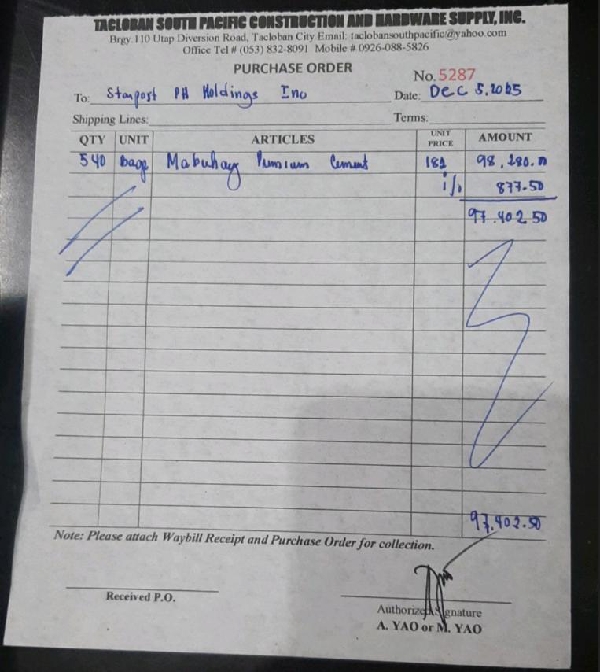 TACLOBAN SOUTH PACIFIC CONSTRUCTION AND HARDWARE SUPPLY, INC.
Brgy. 110 Utap Diversion Road, Tacloban City Email: taclobansouthpacific@yahoo.com
Office Tel # (053) 832-8091 Mobile # 0926-088-5826
PURCHASE ORDER
No. 5287
To: Stanpost PH Holdings Inc Date: Dec 5, 2025
Shipping Lines: Terms:
QTY UNIT ARTICLES UNIT PRICE AMOUNT
540 bags Mabuhay Premium Cement 182 98,280.00
1% 877.50
97,402.50
97,402.50
Note: Please attach Waybill Receipt and Purchase Order for collection.
Received P.O.
Authorized Signature
A. YAO or M. YAO